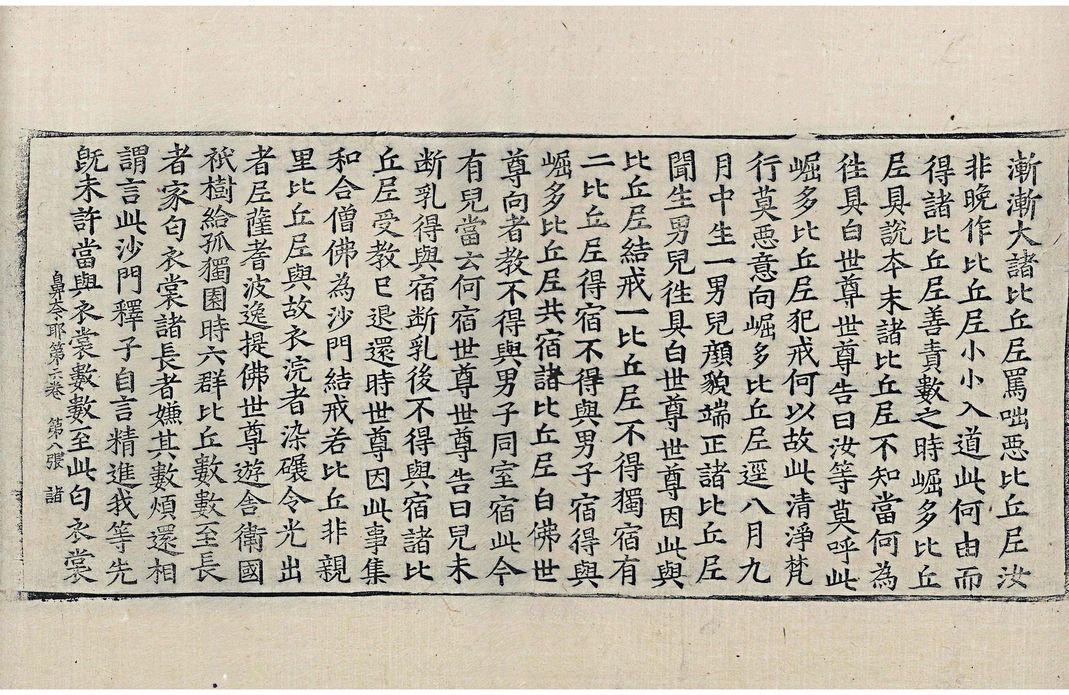 漸漸大諸比丘尼罵咄惡比丘尼汝
非晚作比丘尼小小入道此何由而
得諸比丘尼善責數之時崛多比丘
尼具說本末諸比丘尼不知當何為
徃具白世尊世尊告曰汝等莫呼此
崛多比丘尼犯戒何以故此清淨梵
行莫惡意向崛多比丘尼逕八月九
月中生一男兒顏貌端正諸比丘尼
聞生男兒徃具白世尊世尊因此與
比丘尼結戒一比丘尼不得獨宿有
二比丘尼得宿不得與男子宿得與
崛多比丘尼共宿諸比丘尼白佛世
尊向者教不得與男子同室宿此今
有兒當云何宿世尊世尊告曰兒未
断乳得與宿断乳後不得與宿諸比
丘尼受教已退還時世尊因此事集
和合僧佛為沙門結戒若比丘非親
里比丘尼與故衣浣者染碾令光出
者尼薩耆波逸提佛世尊遊舍衛國
祇樹給孤獨園時六群比丘數數至長
者家匄衣裳諸長者嫌其數煩還相
謂言此沙門釋子自言精進我等先
旣未許當與衣裳數數至此匄衣裳
鼻柰耶第六卷　第八張　詣